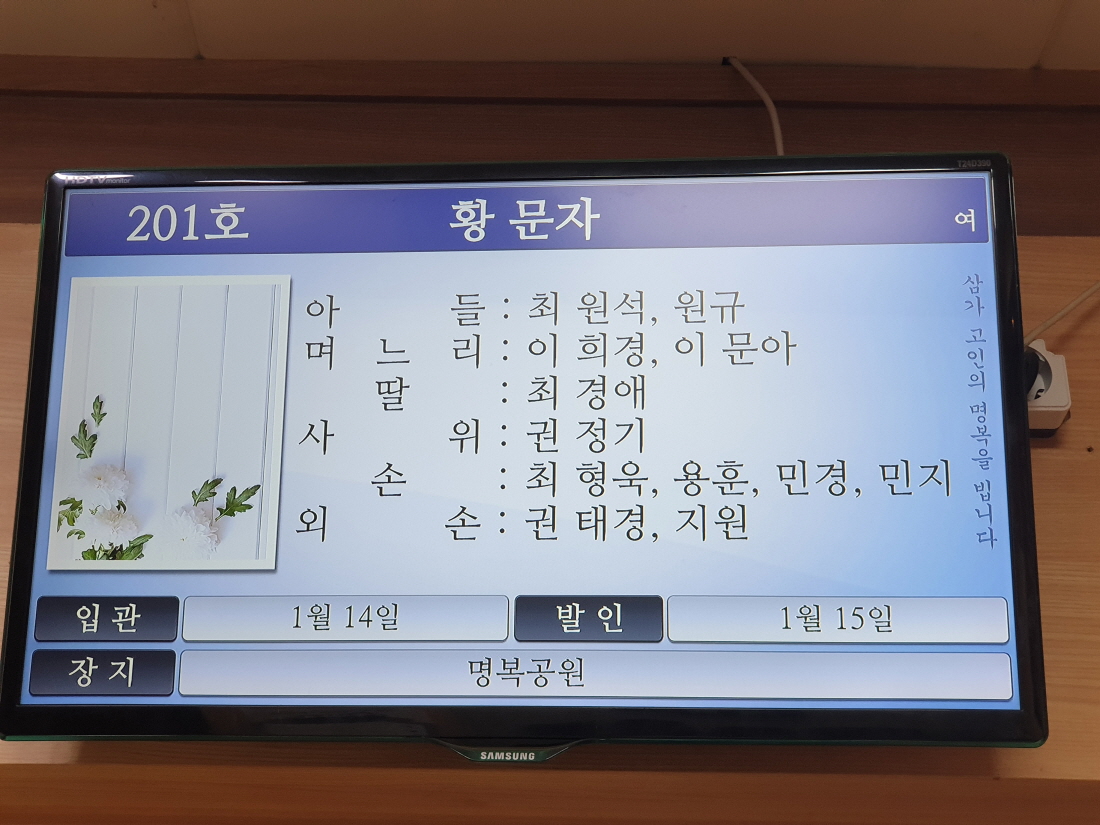 HDTV monitor
T24D390
201호 황 문자 여
아 들 : 최 원석, 원규
며 느 리 : 이 희경, 이 문아
딸 : 최 경애
사 위 : 권 정기
손 : 최 형욱, 용훈, 민경, 민지
외 손 : 권 태경, 지원
삼가 고인의 명복을 빕니다
입 관 1월 14일 발 인 1월 15일
장 지 명복공원
SAMSUNG